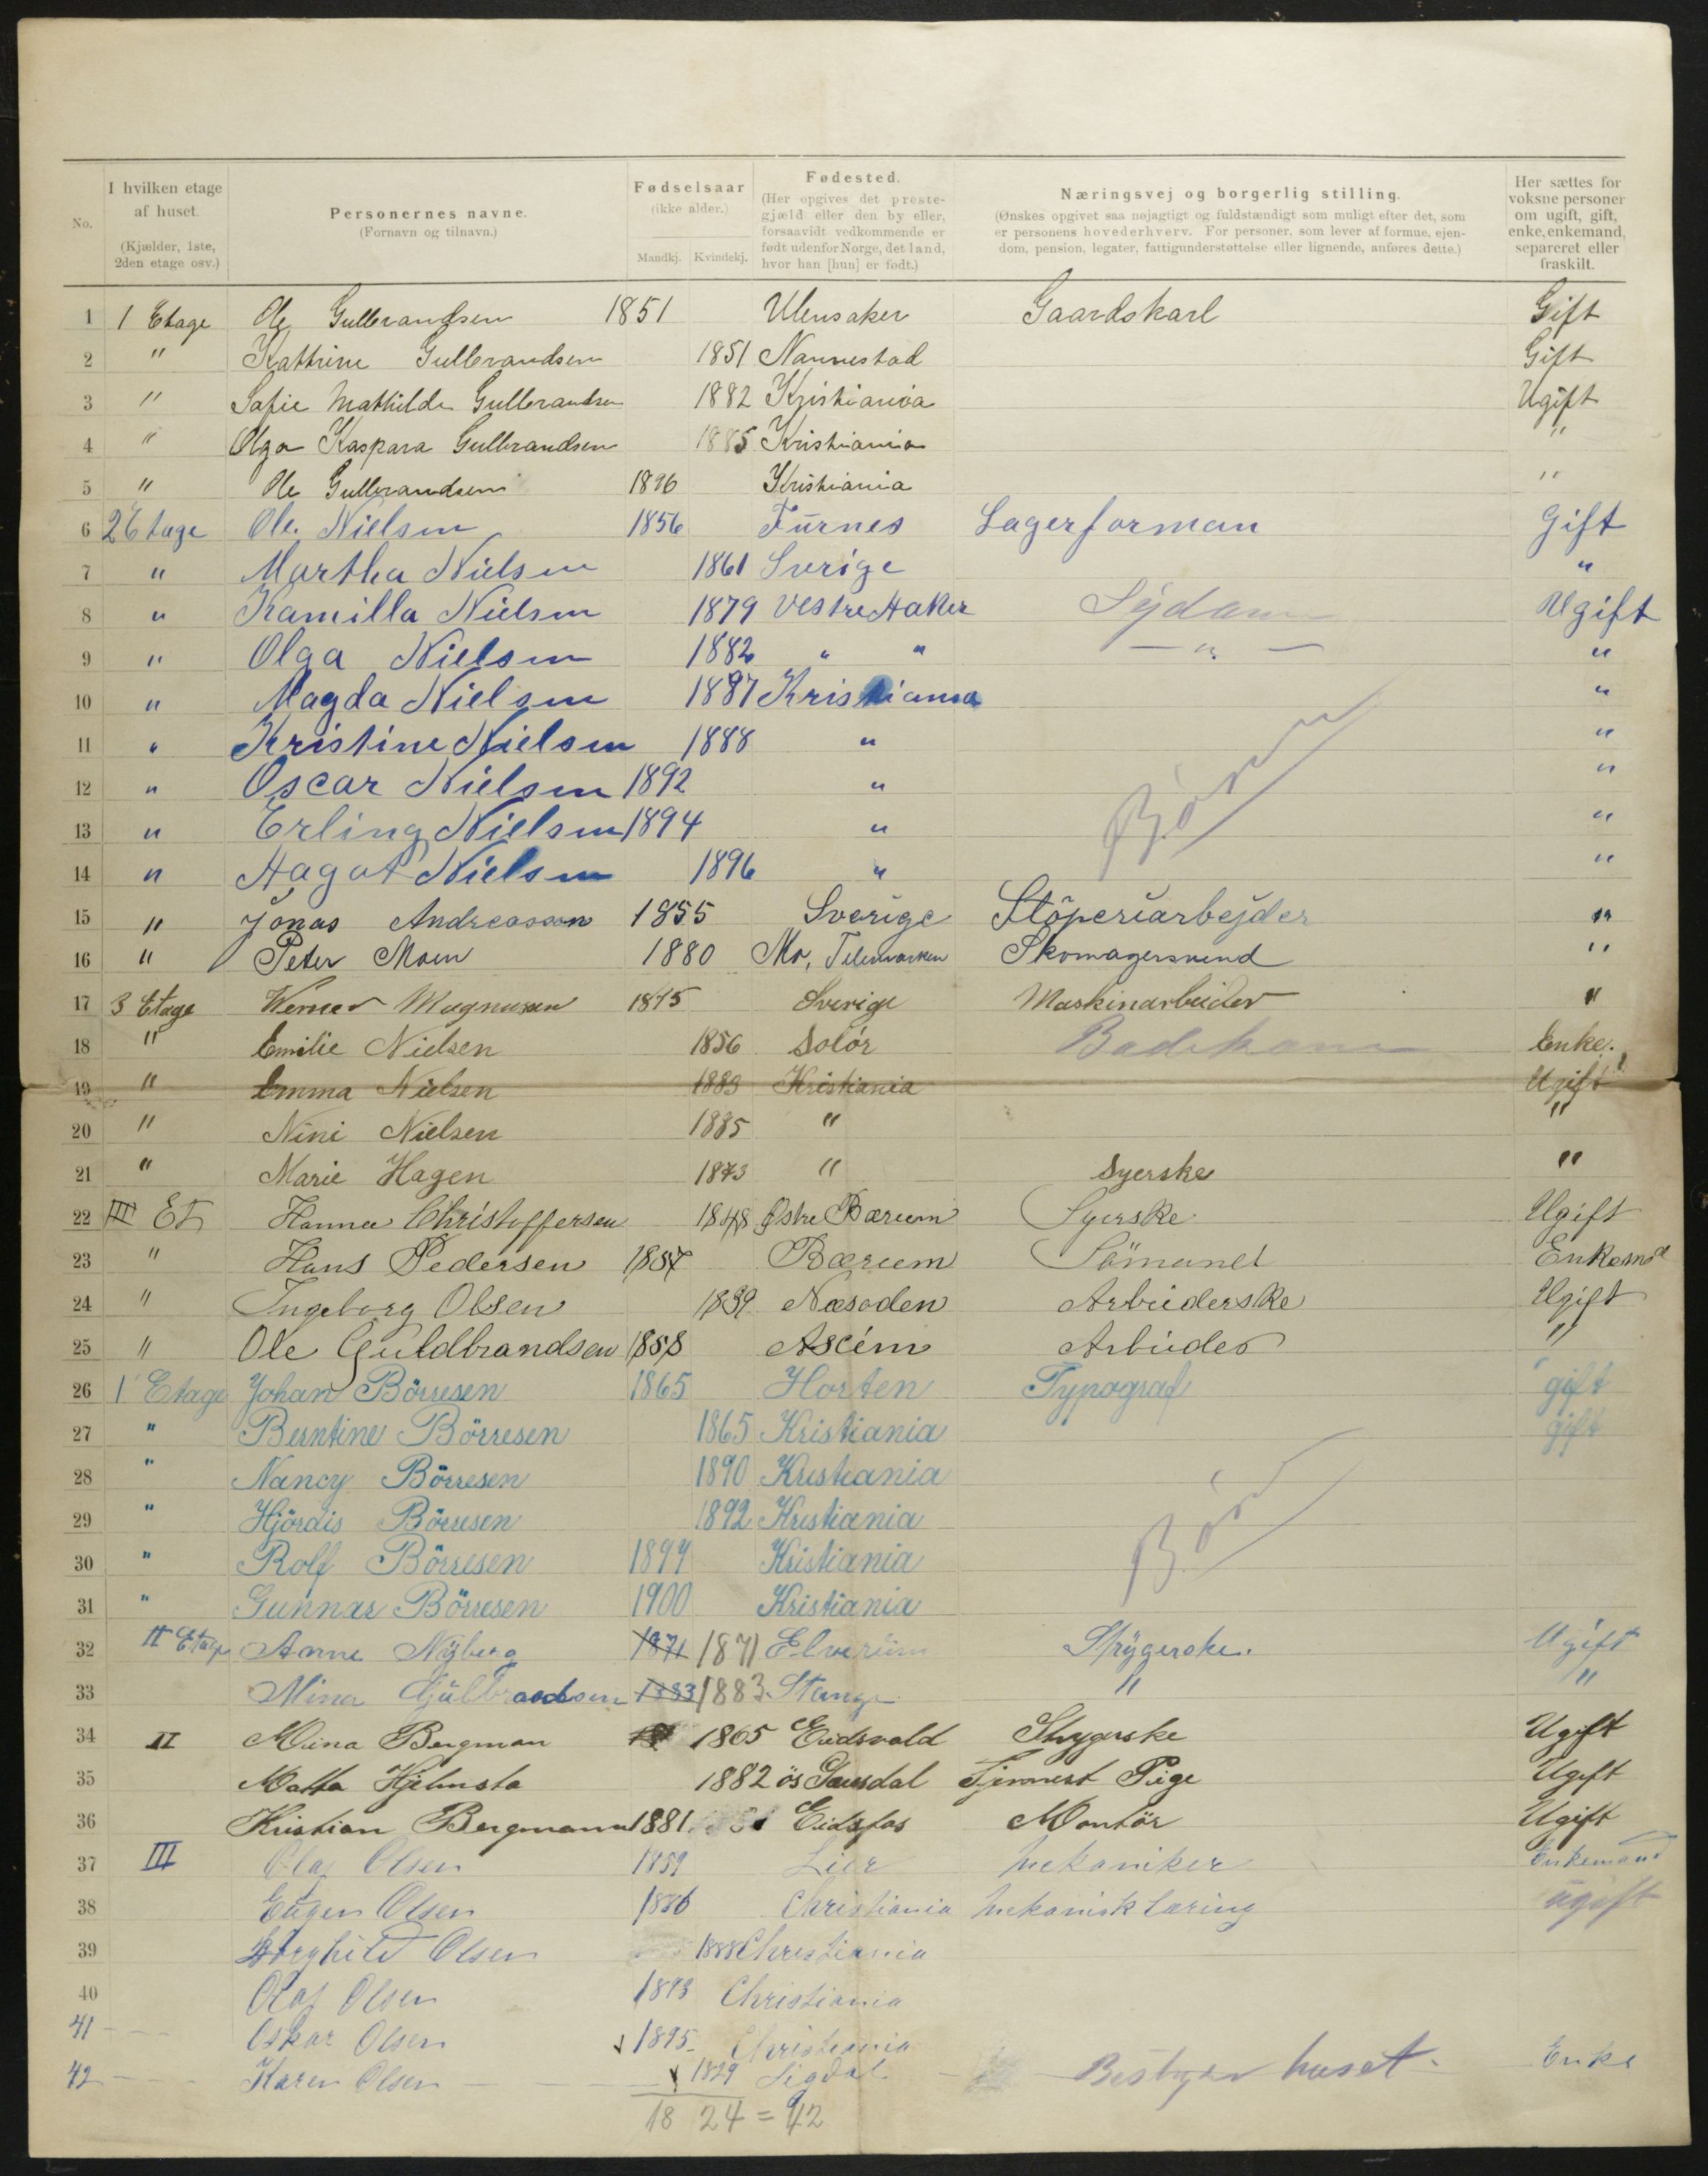 No.
I hvilken etage af huset. (Kjælder, 1ste, 2den etage osv.)
Personernes navne. (Fornavn og tilnavn.)
Fødselsaar (ikke alder.) Mandkj. Kvindekj.
Fødested. (Her opgives det prestegjæld eller den by eller, forsaavidt vedkommende er født udenfor Norge, det land, hvor han [hun] er født.)
Næringsvej og borgerlig stilling. (Ønskes opgivet saa nøjagtigt og fuldstændigt som muligt efter det, som er personens hovederhverv. For personer, som lever af formue, ejendom, pension, legater, fattigunderstøttelse eller lignende, anføres dette.)
Her sættes for voksne personer om ugift, gift, enke, enkemand, separeret eller fraskilt.
1 1 Etage Ole Gulbrandsen 1851 Ulensaker Gaardskarl Gift
2 " Kathrine Gulbrandsen 1851 Nannestad Gift
3 " Sofie Mathilde Gulbrandsen 1882 Kristiania Ugift
4 " Olga Kaspara Gulbrandsen 1885 Kristiania "
5 " Ole Gulbrandsen 1896 Kristiania "
6 2 Etage Ole Nielsen 1856 Furnes Lagerforman Gift
7 " Martha Nielsen 1861 Sverige "
8 " Kamilla Nielsen 1879 Vestre Haker Sydame Ugift
9 " Olga Nielsen 1882 " " — " — "
10 " Magda Nielsen 1887 Kristiania "
11 " Kristine Nielsen 1888 " "
12 " Oscar Nielsen 1892 " Børn "
13 " Erling Nielsen 1894 " "
14 " Hagot Nielsen 1896 " "
15 " Jonas Andreasson 1855 Sverige Stöperiarbejder "
16 " Peter Moen 1880 Mo, Telemarken Skomagersvend "
17 3 Etage Werner Magnusen 1875 Sverige Maskinarbeider "
18 " Emilie Nielsen 1856 Solör Badekone Enke.
19 " Emma Nielsen 1883 Kristiania Ugift
20 " Nini Nielsen 1885 " "
21 " Marie Hagen 1873 " Syerske "
22 III Et Hanna Christoffersen 1848 Østre Bærum Syerske Ugift
23 " Hans Pedersen 1857 Bærum Sömand Enkemd
24 " Ingeborg Olsen 1839 Næsoden Arbeiderske Ugift
25 " Ole Guldbrandsen 1858 Arbeider "
26 1 Etage Johan Börresen 1865 Horten Typograf gift
27 " Berntine Börresen 1865 Kristiania gift
28 " Nancy Börresen 1890 Kristiania
29 " Hjördis Börresen 1892 Kristiania
30 " Rolf Börresen 1897 Kristiania Børn
31 " Gunnar Börresen 1900 Kristiania
32 II Etage Anne Nyberg 1871 1871 Elverum Strygerske. Ugift
33 Mina Gulbrandsen 1883 1883 Stange " "
34 II Mina Bergman 1865 Eidsvold Strygerske Ugift
35 Hjelmsta 1882 ös Gausdal Tjennest Pige Ugift
36 Kristian Bergmann 1881 Eidsfos Montör Ugift
37 III Olaf Olsen 1859 Lier Mekaniker Enkemand
38 Eugen Olsen 1886 Christiania Mekanisk Læring ugift
39 Borghild Olsen 1888 Christiania
40 Olaf Olsen 1893 Christiania
41 Oskar Olsen 1895 Christiania
42 Karen Olsen 1829 Sigdal Bestyrer huset Enke
18 24 = 42